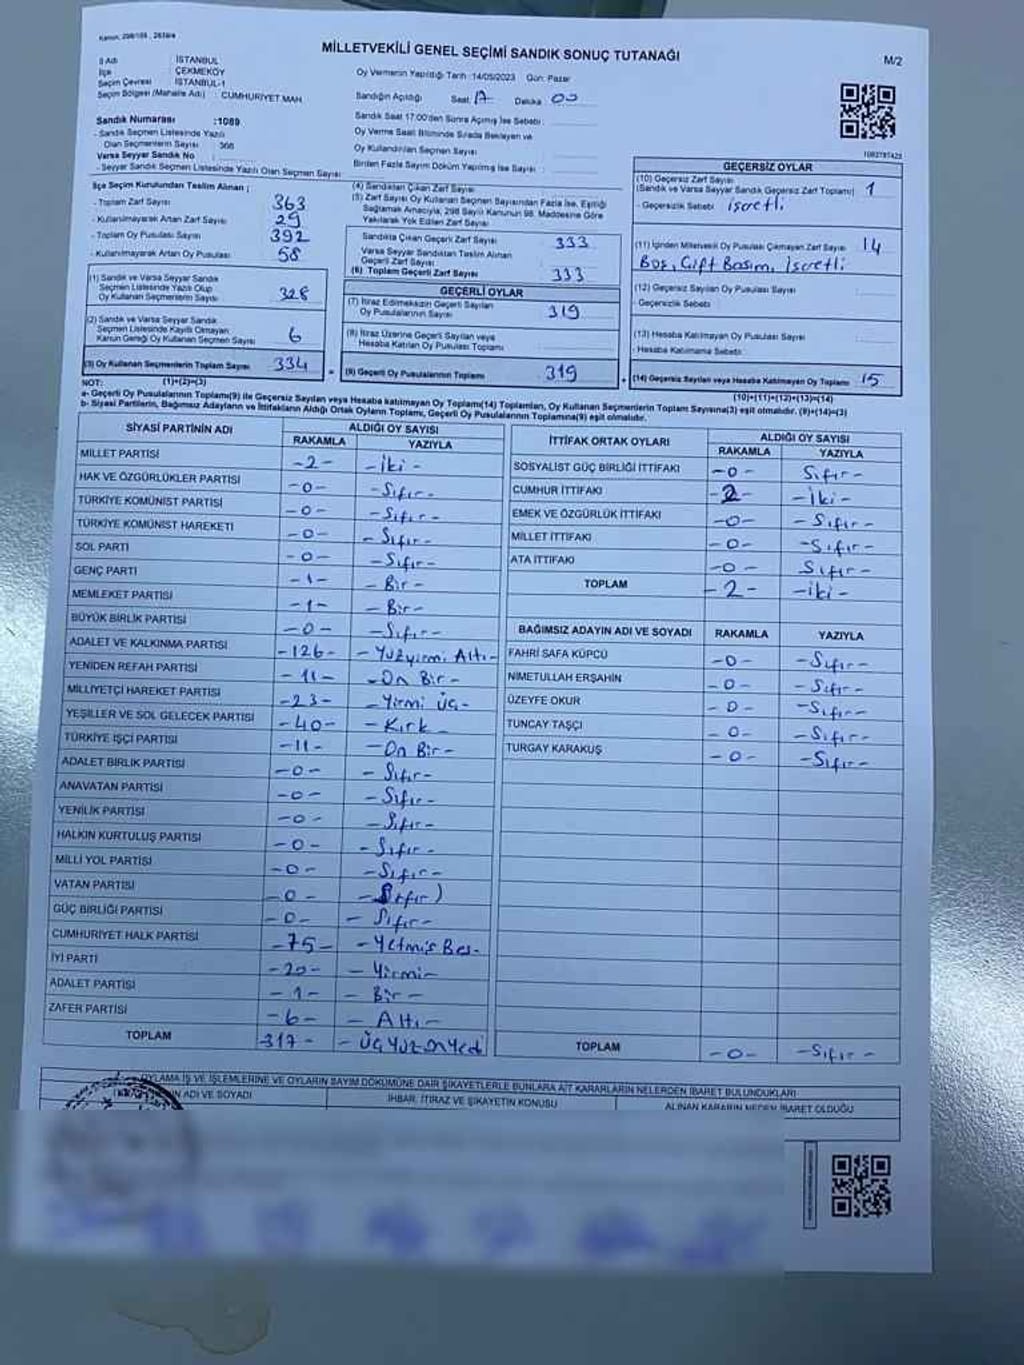 MİLLETVEKİLİ GENEL SEÇİMİ SANDIK SONUÇ TUTANAĞI
M/2
İl Adı : İSTANBUL
İlçe : ÇEKMEKÖY
Seçim Çevresi : İSTANBUL-1
Seçim Bölgesi (Mahalle Adı) : CUMHURİYET MAH.
Oy Vermenin Yapıldığı Tarih :14/05/2023 Gün: Pazar
Sandığın Açıldığı Saat: 17 Dakika 00
Sandık Saat 17:00'den Sonra Açılmış İse Sebebi :
Oy Verme Saati Bitiminde Sırada Bekleyen ve
Oy Kullandırılan Seçmen Sayısı :
Birden Fazla Sayım Döküm Yapılmış İse Sayısı :
Sandık Numarası :1089
- Sandık Seçmen Listesinde Yazılı
Olan Seçmenlerin Sayısı : 368
Varsa Seyyar Sandık No :
- Seyyar Sandık Seçmen Listesinde Yazılı Olan Seçmen Sayısı
İlçe Seçim Kurulundan Teslim Alınan ;
- Toplam Zarf Sayısı 363
- Kullanılmayarak Artan Zarf Sayısı 29
- Toplam Oy Pusulası Sayısı 392
- Kullanılmayarak Artan Oy Pusulası 58
(1) Sandık ve Varsa Seyyar Sandık
Seçmen Listesinde Yazılı Olup
Oy Kullanan Seçmenlerin Sayısı 328
(2) Sandık ve Varsa Seyyar Sandık
Seçmen Listesinde Kayıtlı Olmayan
Kanun Gereği Oy Kullanan Seçmen Sayısı 6
(3) Oy Kullanan Seçmenlerin Toplam Sayısı 334
(1)+(2)=(3)
(4) Sandıktan Çıkan Zarf Sayısı
(5) Zarf Sayısı Oy Kullanan Seçmen Sayısından Fazla İse, Eşitliği
Sağlamak Amacıyla, 298 Sayılı Kanunun 98. Maddesine Göre
Yakılarak Yok Edilen Zarf Sayısı
Sandıkta Çıkan Geçerli Zarf Sayısı 333
Varsa Seyyar Sandıktan Teslim Alınan
Geçerli Zarf Sayısı
(6) Toplam Geçerli Zarf Sayısı 333
GEÇERLİ OYLAR
(7) İtiraz Edilmeksizin Geçerli Sayılan
Oy Pusulalarının Sayısı 319
(8) İtiraz Üzerine Geçerli Sayılan veya
Hesaba Katılan Oy Pusulası Toplamı
(9) Geçerli Oy Pusulalarının Toplamı 319
GEÇERSİZ OYLAR
(10) Geçersiz Zarf Sayısı
(Sandık ve Varsa Seyyar Sandık Geçersiz Zarf Toplamı) 1
- Geçersizlik Sebebi : işretli
(11) İçinden Milletvekili Oy Pusulası Çıkmayan Zarf Sayısı 14
Boş, Çift Basım, İşcretli
(12) Geçersiz Sayılan Oy Pusulası Sayısı
- Geçersizlik Sebebi :
(13) Hesaba Katılmayan Oy Pusulası Sayısı
- Hesaba Katılmama Sebebi:
(14) Geçersiz Sayılan veya Hesaba Katılmayan Oy Pusulası Toplamı 15
(10)+(11)+(12)+(13)=(14)
NOT:
a- Geçerli Oy Pusulalarının Toplamı(9) ile Geçersiz Sayılan veya Hesaba Katılmayan Oy Toplamı(14) Toplamları, Oy Kullanan Seçmenlerin Toplam Sayısına(3) eşit olmalıdır. (9)+(14)=(3)
b- Siyasi Partilerin, Bağımsız Adayların ve İttifakların Aldığı Ortak Oyların Toplamı, Geçerli Oy Pusulalarının Toplamına(9) eşit olmalıdır.
SİYASİ PARTİNİN ADI ALDIĞI OY SAYISI
RAKAMLA YAZIYLA
MİLLET PARTİSİ -2- -iki-
HAK VE ÖZGÜRLÜKLER PARTİSİ -0- -Sıfır-
TÜRKİYE KOMÜNİST PARTİSİ -0- -Sıfır-
TÜRKİYE KOMÜNİST HAREKETİ -0- -Sıfır-
SOL PARTİ -0- -Sıfır-
GENÇ PARTİ -1- -Bir-
MEMLEKET PARTİSİ -1- -Bir-
BÜYÜK BİRLİK PARTİSİ -0- -Sıfır-
ADALET VE KALKINMA PARTİSİ -126- -Yüzyirmi Altı-
YENİDEN REFAH PARTİSİ -11- -On Bir-
MİLLİYETÇİ HAREKET PARTİSİ -23- -Yirmi Üç-
YEŞİLLER VE SOL GELECEK PARTİSİ -40- -Kırk-
TÜRKİYE İŞÇİ PARTİSİ -11- -On Bir-
ADALET BİRLİK PARTİSİ -0- -Sıfır-
ANAVATAN PARTİSİ -0- -Sıfır-
YENİLİK PARTİSİ -0- -Sıfır-
HALKIN KURTULUŞ PARTİSİ -0- -Sıfır-
MİLLİ YOL PARTİSİ -0- -Sıfır-
VATAN PARTİSİ -0- -Sıfır)
GÜÇ BİRLİĞİ PARTİSİ -0- -Sıfır-
CUMHURİYET HALK PARTİSİ -75- -Yetmiş Beş-
İYİ PARTİ -20- -Yirmi-
ADALET PARTİSİ -1- -Bir-
ZAFER PARTİSİ -6- -Altı-
TOPLAM -317- -ÜçYüzOnYedi
İTTİFAK ORTAK OYLARI ALDIĞI OY SAYISI
RAKAMLA YAZIYLA
SOSYALİST GÜÇ BİRLİĞİ İTTİFAKI -0- Sıfır-
CUMHUR İTTİFAKI -2- -İki-
EMEK VE ÖZGÜRLÜK İTTİFAKI -0- -Sıfır-
MİLLET İTTİFAKI -0- -Sıfır-
ATA İTTİFAKI -0- Sıfır-
TOPLAM -2- -iki-
BAĞIMSIZ ADAYIN ADI VE SOYADI RAKAMLA YAZIYLA
FAHRİ SAFA KÜPCÜ -0- -Sıfır-
NİMETULLAH ERŞAHİN -0- -Sıfır-
ÜZEYFE OKUR -0- -Sıfır-
TUNCAY TAŞÇI -0- -Sıfır-
TURGAY KARAKUŞ -0- -Sıfır-
TOPLAM -0- -Sıfır-
OYLAMA İŞ VE İŞLEMLERİNE VE OYLARIN SAYIM DÖKÜMÜNE DAİR ŞİKAYETLERLE BUNLARA AİT KARARLARIN NELERDEN İBARET BULUNDUKLARI
ADI VE SOYADI İHBAR, İTİRAZ VE ŞİKAYETİN KONUSU ALINAN KARARIN NEDEN İBARET OLDUĞU